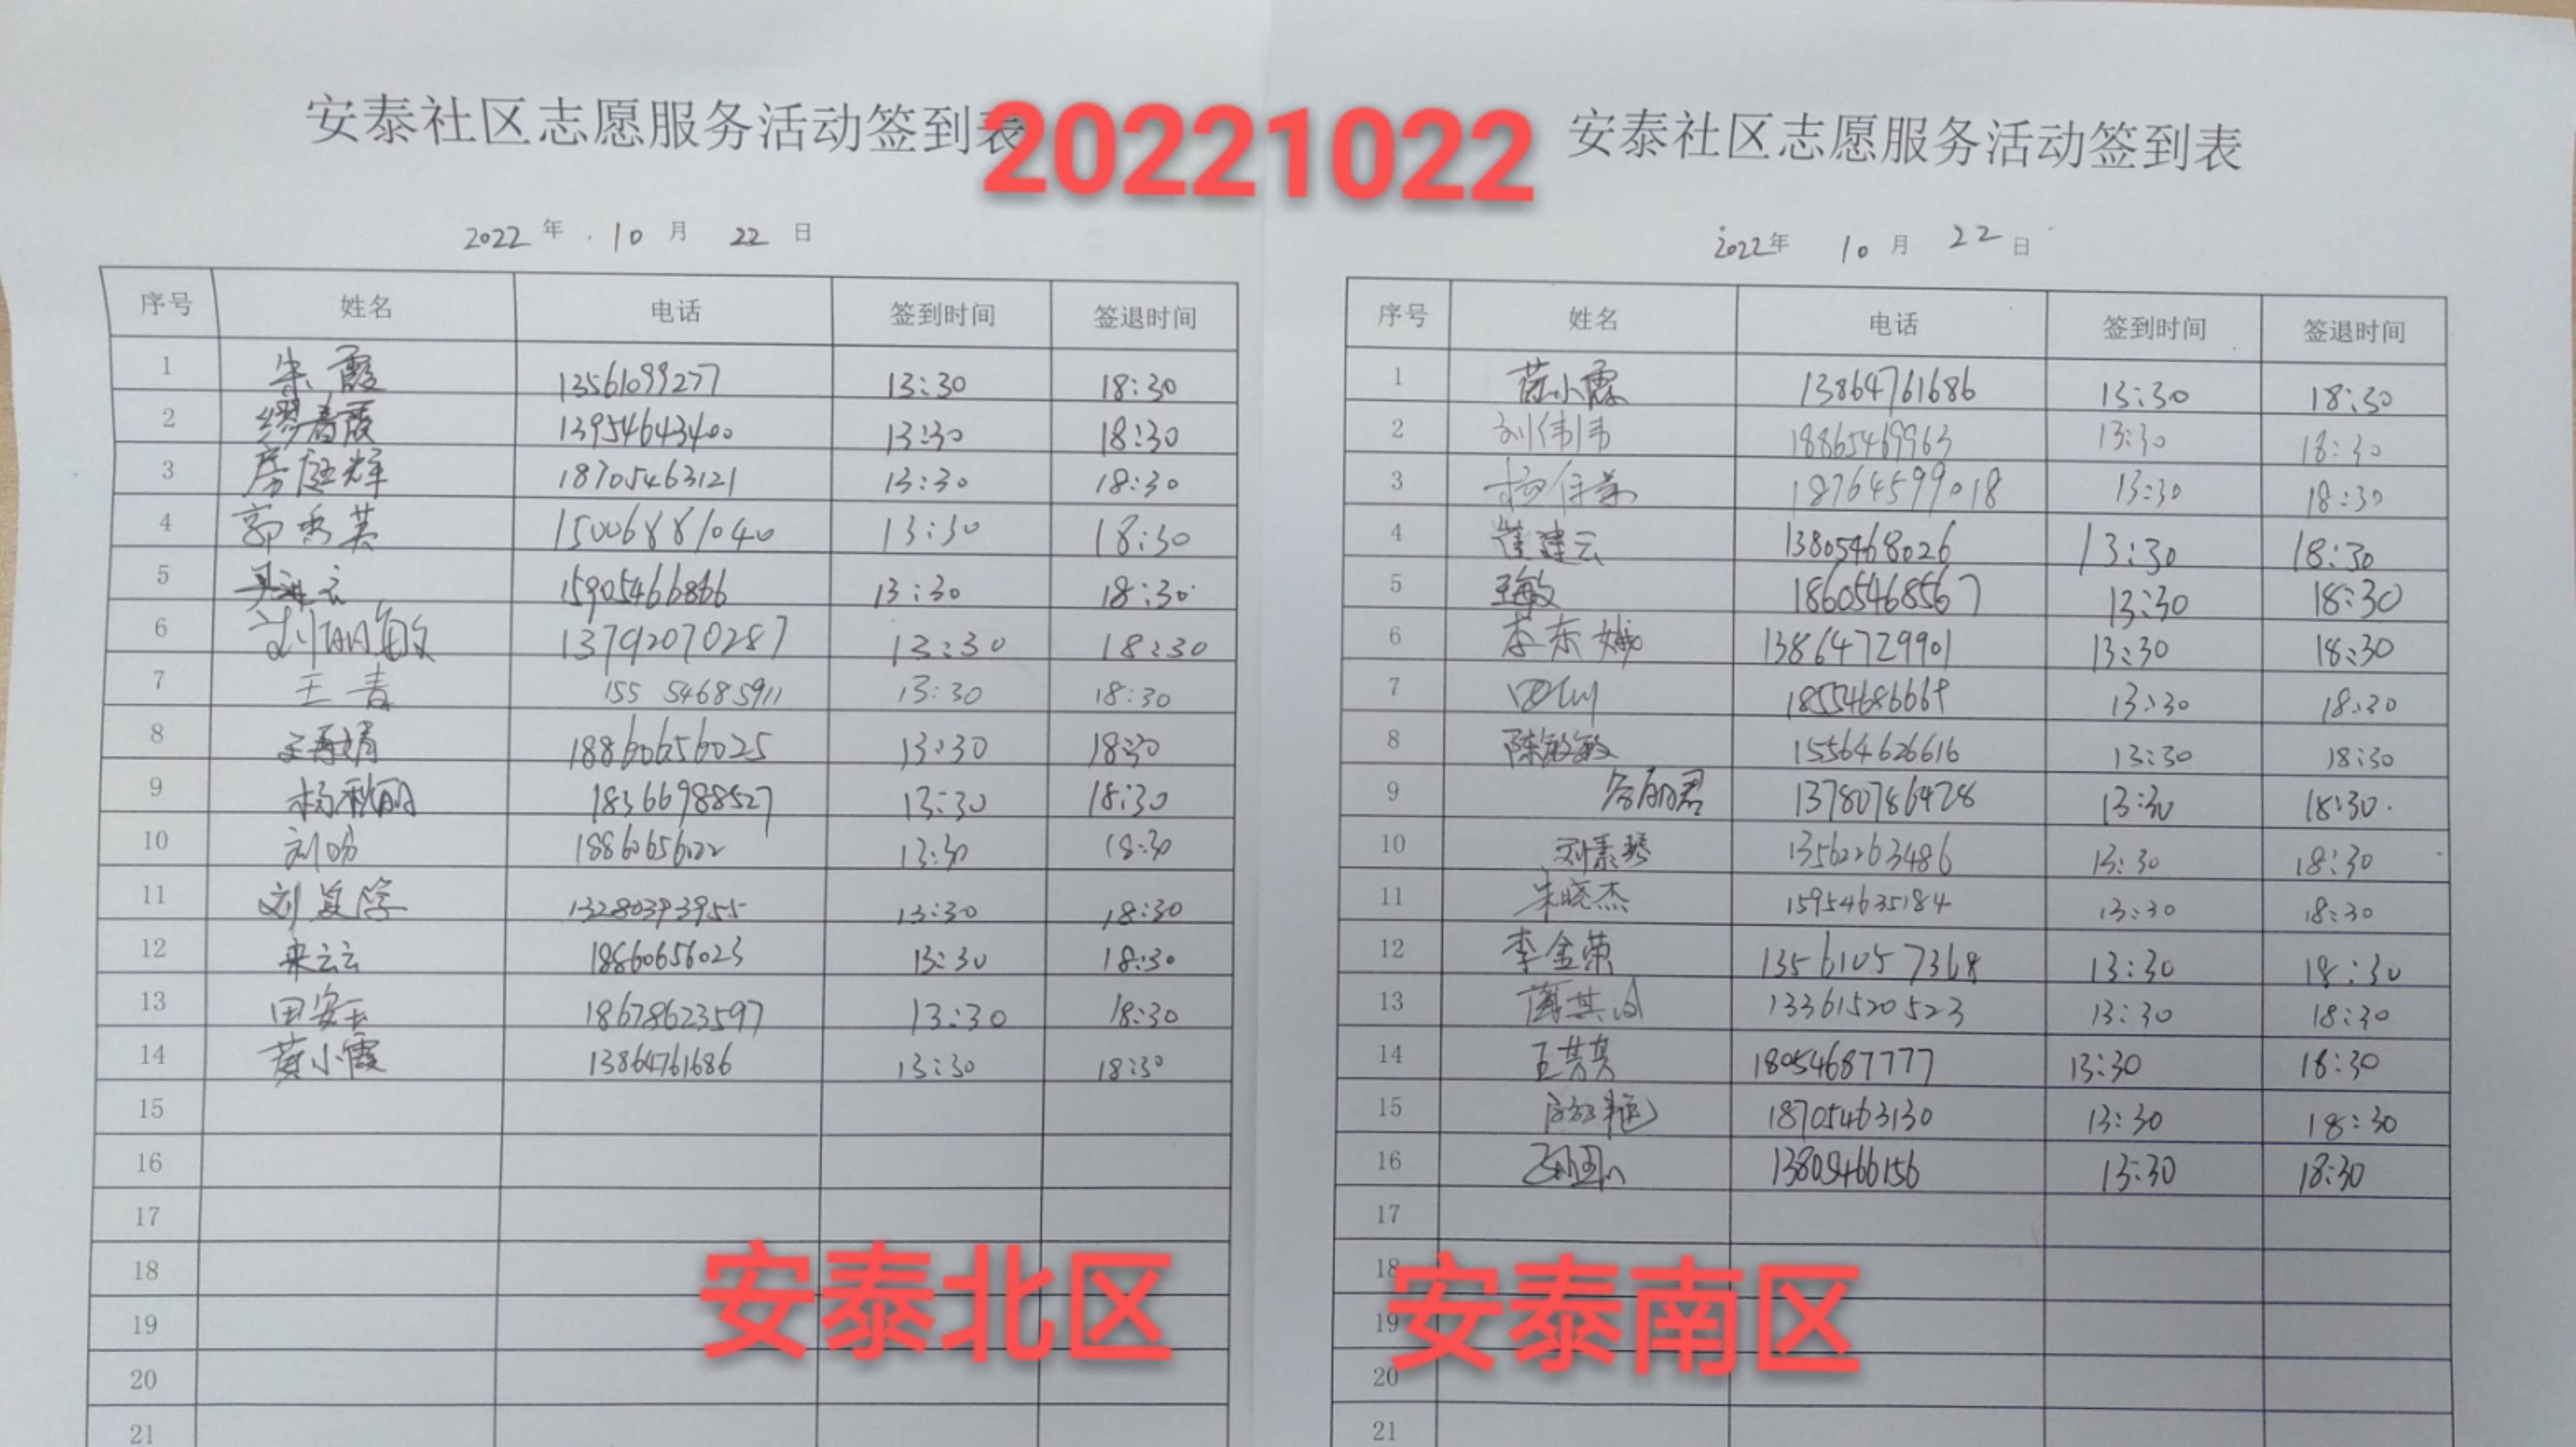 安泰社区志愿服务活动签到表
20221022
2022年 10月 22日
序号 姓名 电话 签到时间 签退时间
1 朱霞 13561099277 13:30 18:30
2 缪春霞 13954643400 13:30 18:30
3 房庭辉 18705463121 13:30 18:30
4 郭秀英 15006881040 13:30 18:30
5 15905466866 13:30 18:30
6 刘丽敏 13792070287 13:30 18:30
7 王青 155 54685911 13:30 18:30
8 王再娟 18860656025 13:30 18:30
9 杨秋丽 18366988527 13:30 18:30
10 刘 18860656022 13:30 18:30
11 刘 13280393955 13:30 18:30
12 来云云 18660656023 13:30 18:30
13 田安玉 18678623597 13:30 18:30
14 黄小霞 13864761686 13:30 18:30
15
16
17
18
19
20
21
安泰北区
安泰社区志愿服务活动签到表
2022年 10月 22日
序号 姓名 电话 签到时间 签退时间
1 小霞 13864761686 13:30 18:30
2 刘伟伟 18865469963 13:30 18:30
3 杨 18764599018 13:30 18:30
4 崔建云 13805468026 13:30 18:30
5 王敏 18605468567 13:30 18:30
6 李东娥 13864729901 13:30 18:30
7 13:30 18:30
8 陈敏敏 15564626616 13:30 18:30
9 13780786428 13:30 18:30
10 刘素琴 13562263486 13:30 18:30
11 宋晓杰 15954635184 13:30 18:30
12 李金荣 13561057368 13:30 18:30
13 13361520523 13:30 18:30
14 王芳芳 18054687777 13:30 18:30
15 18705463130 13:30 18:30
16 13805466156 13:30 18:30
17
18
19
20
21
安泰南区